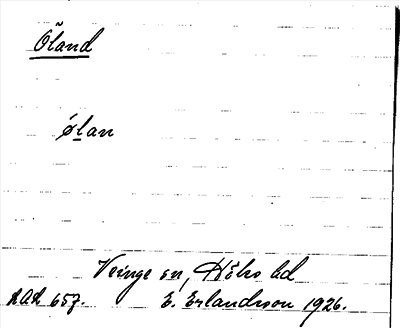 Öland
ølan
Veinge sn, Höks hd
AAA 657. E. Erlandsson 1926.